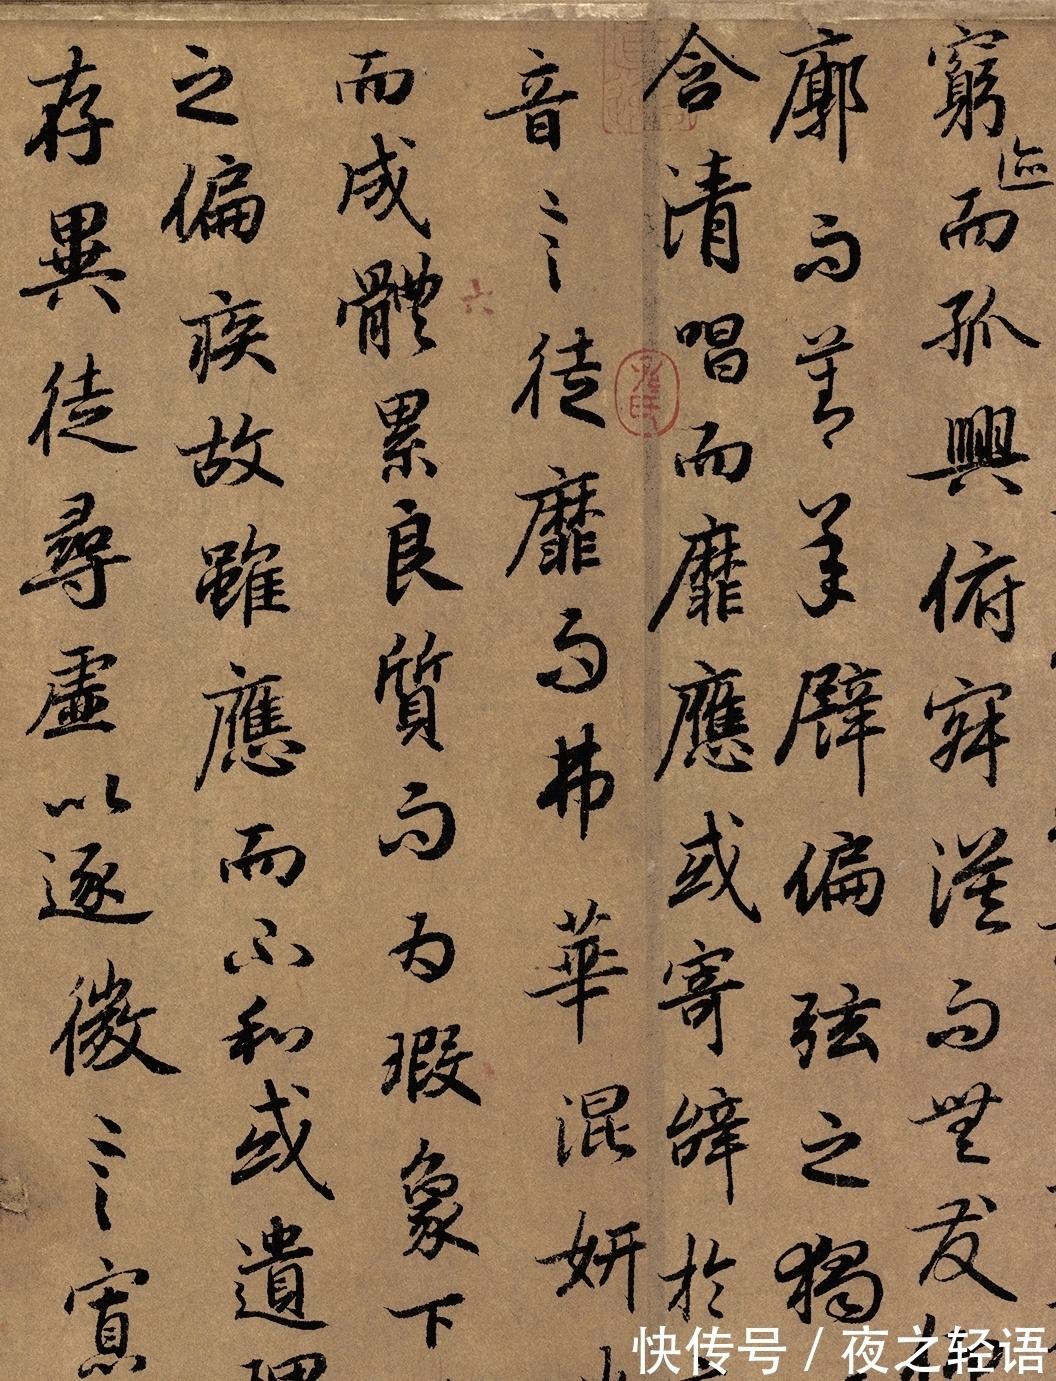 窮迹而孤興俯寂漠而無友
廓而莫承譬偏弦之獨
含清唱而靡應或寄辭於
音言徒靡而弗華混妍
而成體累良質而為瑕象下
之偏疾故雖應而不和或遺
存異徒尋虛以逐微言寡
快传号 / 夜之轻语